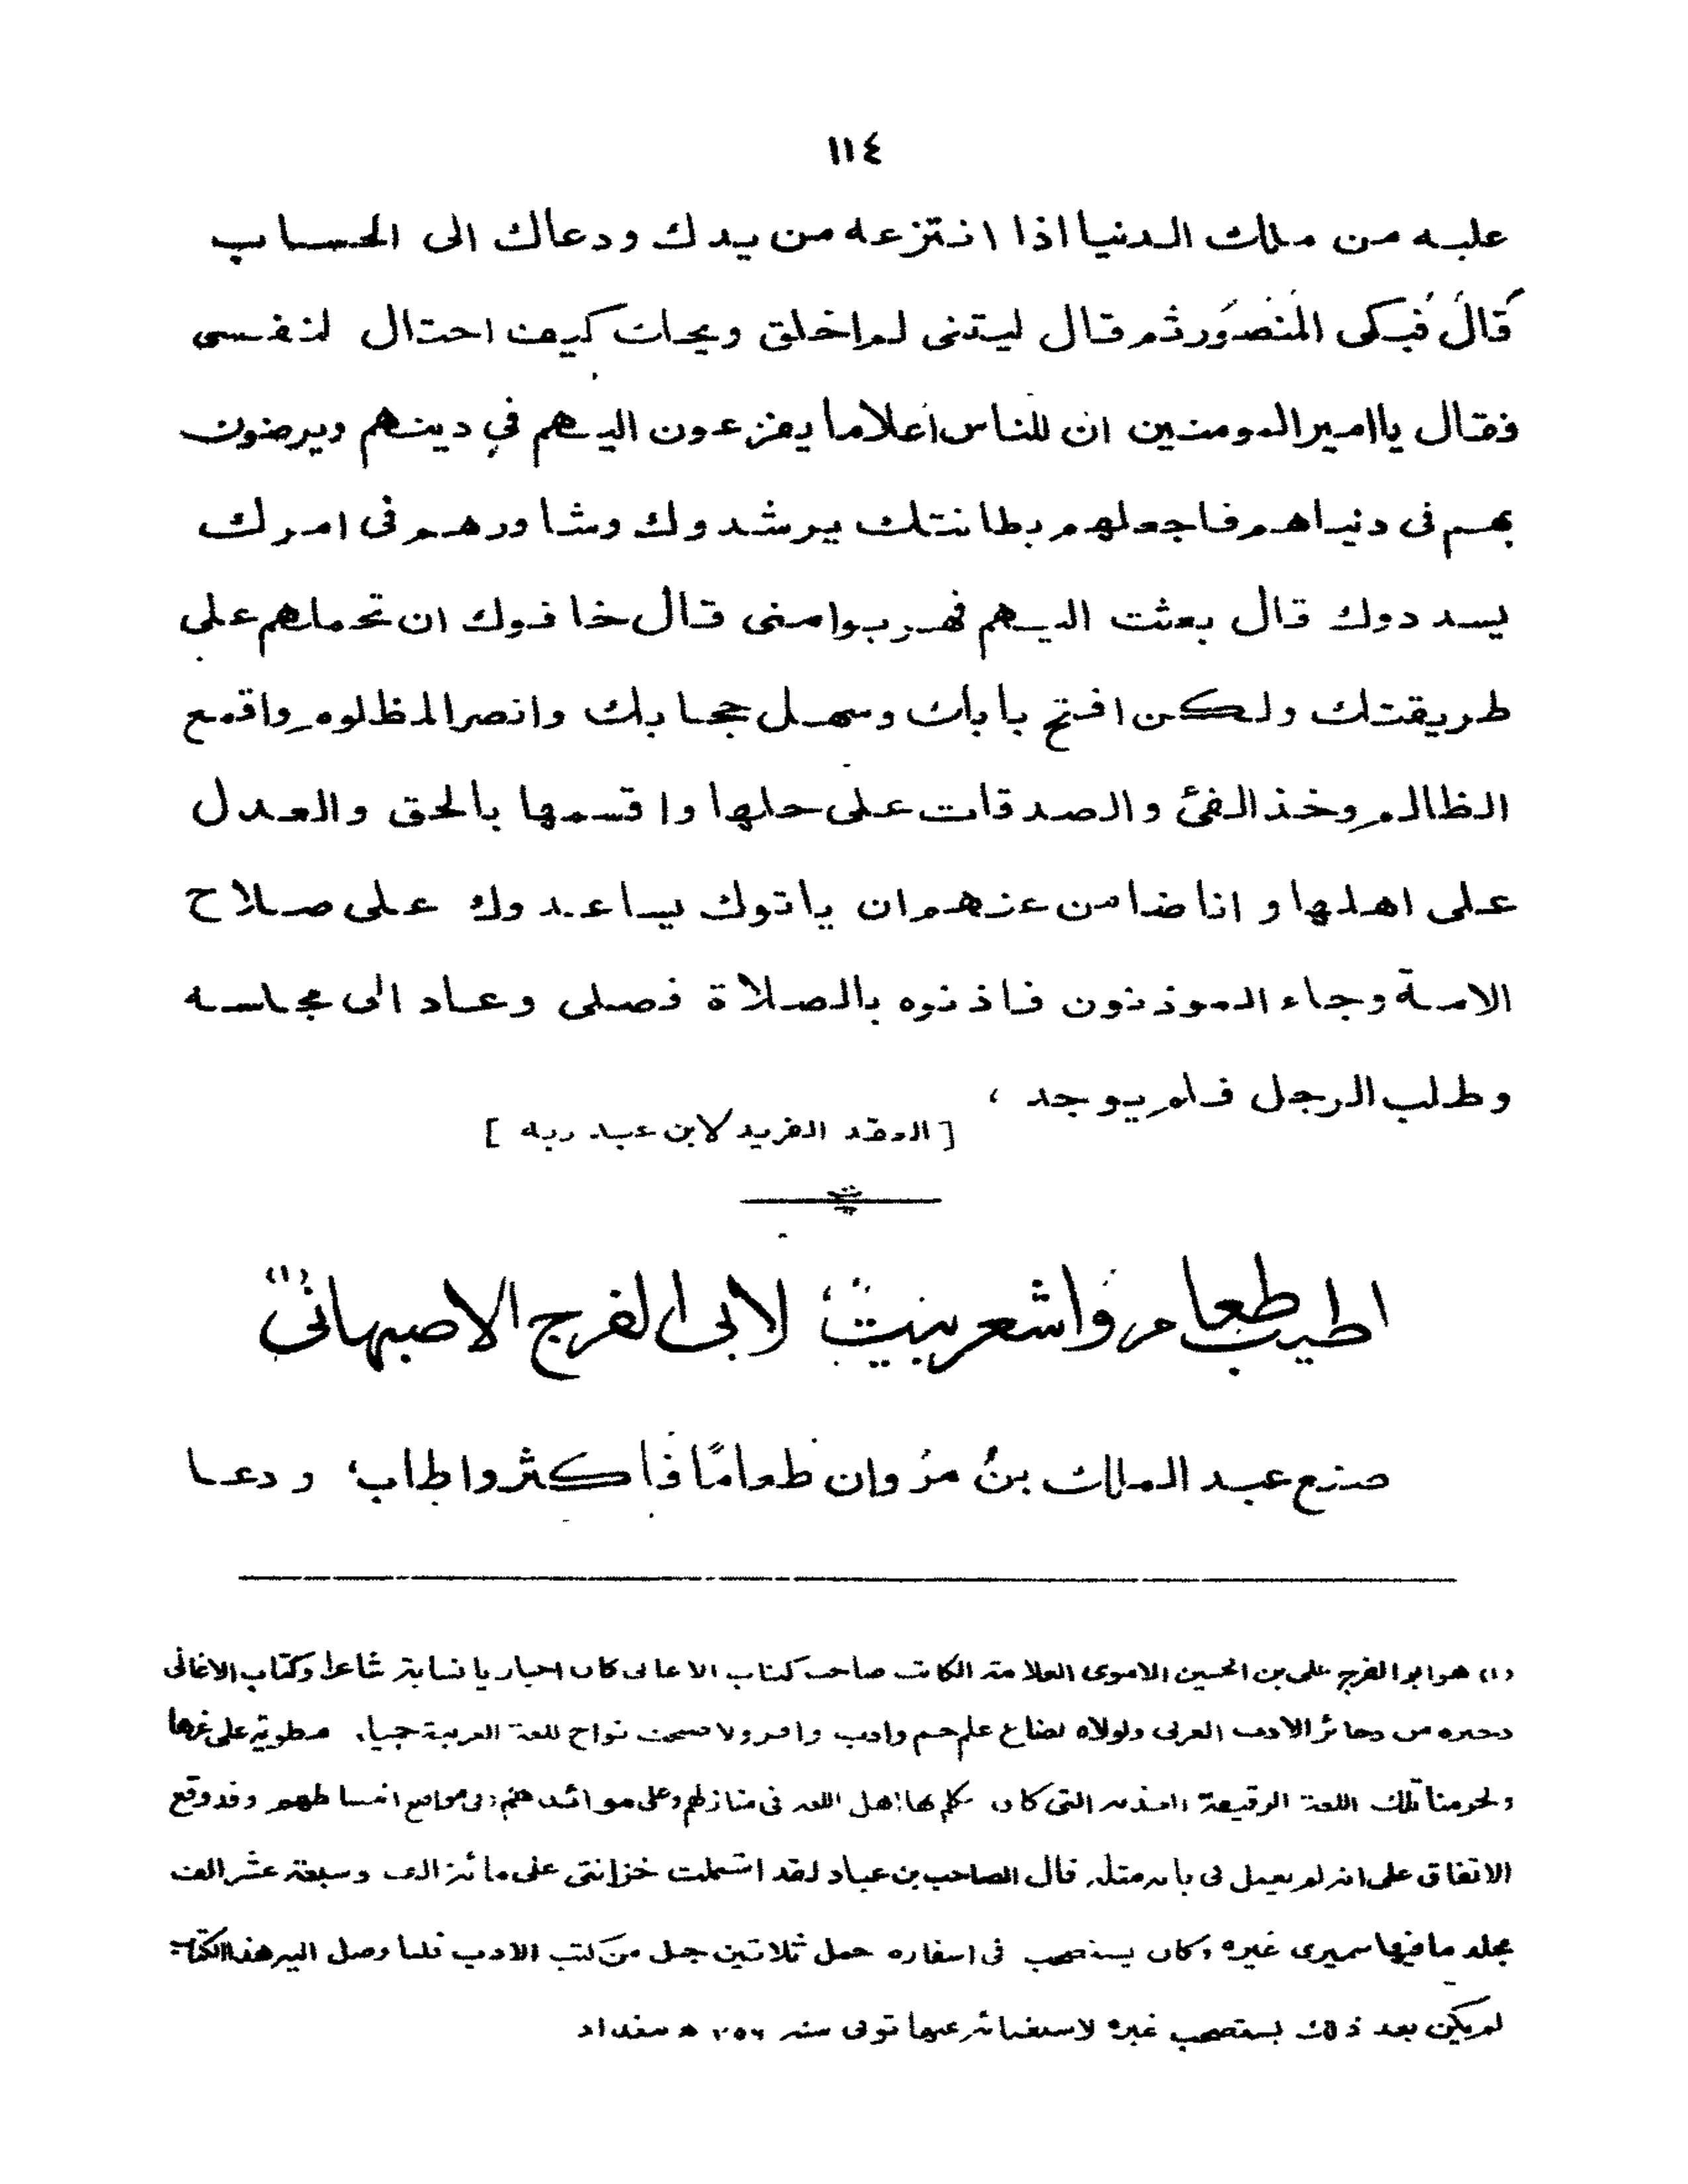 ١١٤
عليه من ملك الدنيا اذا انتزعه من يدك ودعاك الى الحساب
قَالَ فَبكى المَنْصوَر ثم قال ليتنى لم اخلق ويحك كيف احتال لنفسى
فقال يا امير المومنين ان للناس أعلاما يفزعون اليهم في دينهم ويرضون
بهم فى دنياهم فاجعلهم بطانتك يرشدوك وشاورهم فى امرك
يسددوك قال بعثت اليهم فهربوا منى قال خافوك ان تحملهم على
طريقتك ولكن افتح بابك وسهل حجابك وانصر المظلوم واقمع
الظالم وخذ الفئ والصدقات على حلها واقسمها بالحق والعدل
على اهلها وانا ضامن عنهم ان ياتوك يساعدوك على صلاح
الامة وجاء الموذنون فاذنوه بالصلاة فصلى وعاد الى مجلسه
وطلب الرجل فلم يوجد ،
[ العقد الفريد لابن عبد ربه ]
اطيب طعام واشعر بيت لابى الفرج الاصبهانى (١)
صنع عبد الملك بنُ مرْوان طعامًا فأكثر واطاب، ودعا
(١) هو ابو الفرج على بن الحسين الاموى العلامة الكاتب صاحب كتاب الاغانى كان اخباريا نسابة شاعرا وكتاب الاغانى
ذخيرة من ذخائر الادب العربى ولولاه لضاع علم جم وادب وافر ولاصبحت نواح للغة العربية مطوية على غرها
ولحرمنا تلك اللغة الرقيقة التى كان يتكلم بها اهل اللغة فى منازلهم وعلى موائدهم وفى مواضع انبساطهم وقد وقع
الاتفاق على انه لم يعمل فى بابه مثله قال الصاحب بن عباد لقد اشتملت خزانتى على مائة الف وسبعة عشر الف
مجلد ما فيها سميرى غيره وكان يستصحب فى اسفاره حمل ثلاثين جمل من كتب الادب فلما وصل اليه هذا الكتاب
لم يكن بعد ذلك يستصحب غيره لاستغنائه عنها توفى سنة ٣٥٦ ه ببغداد